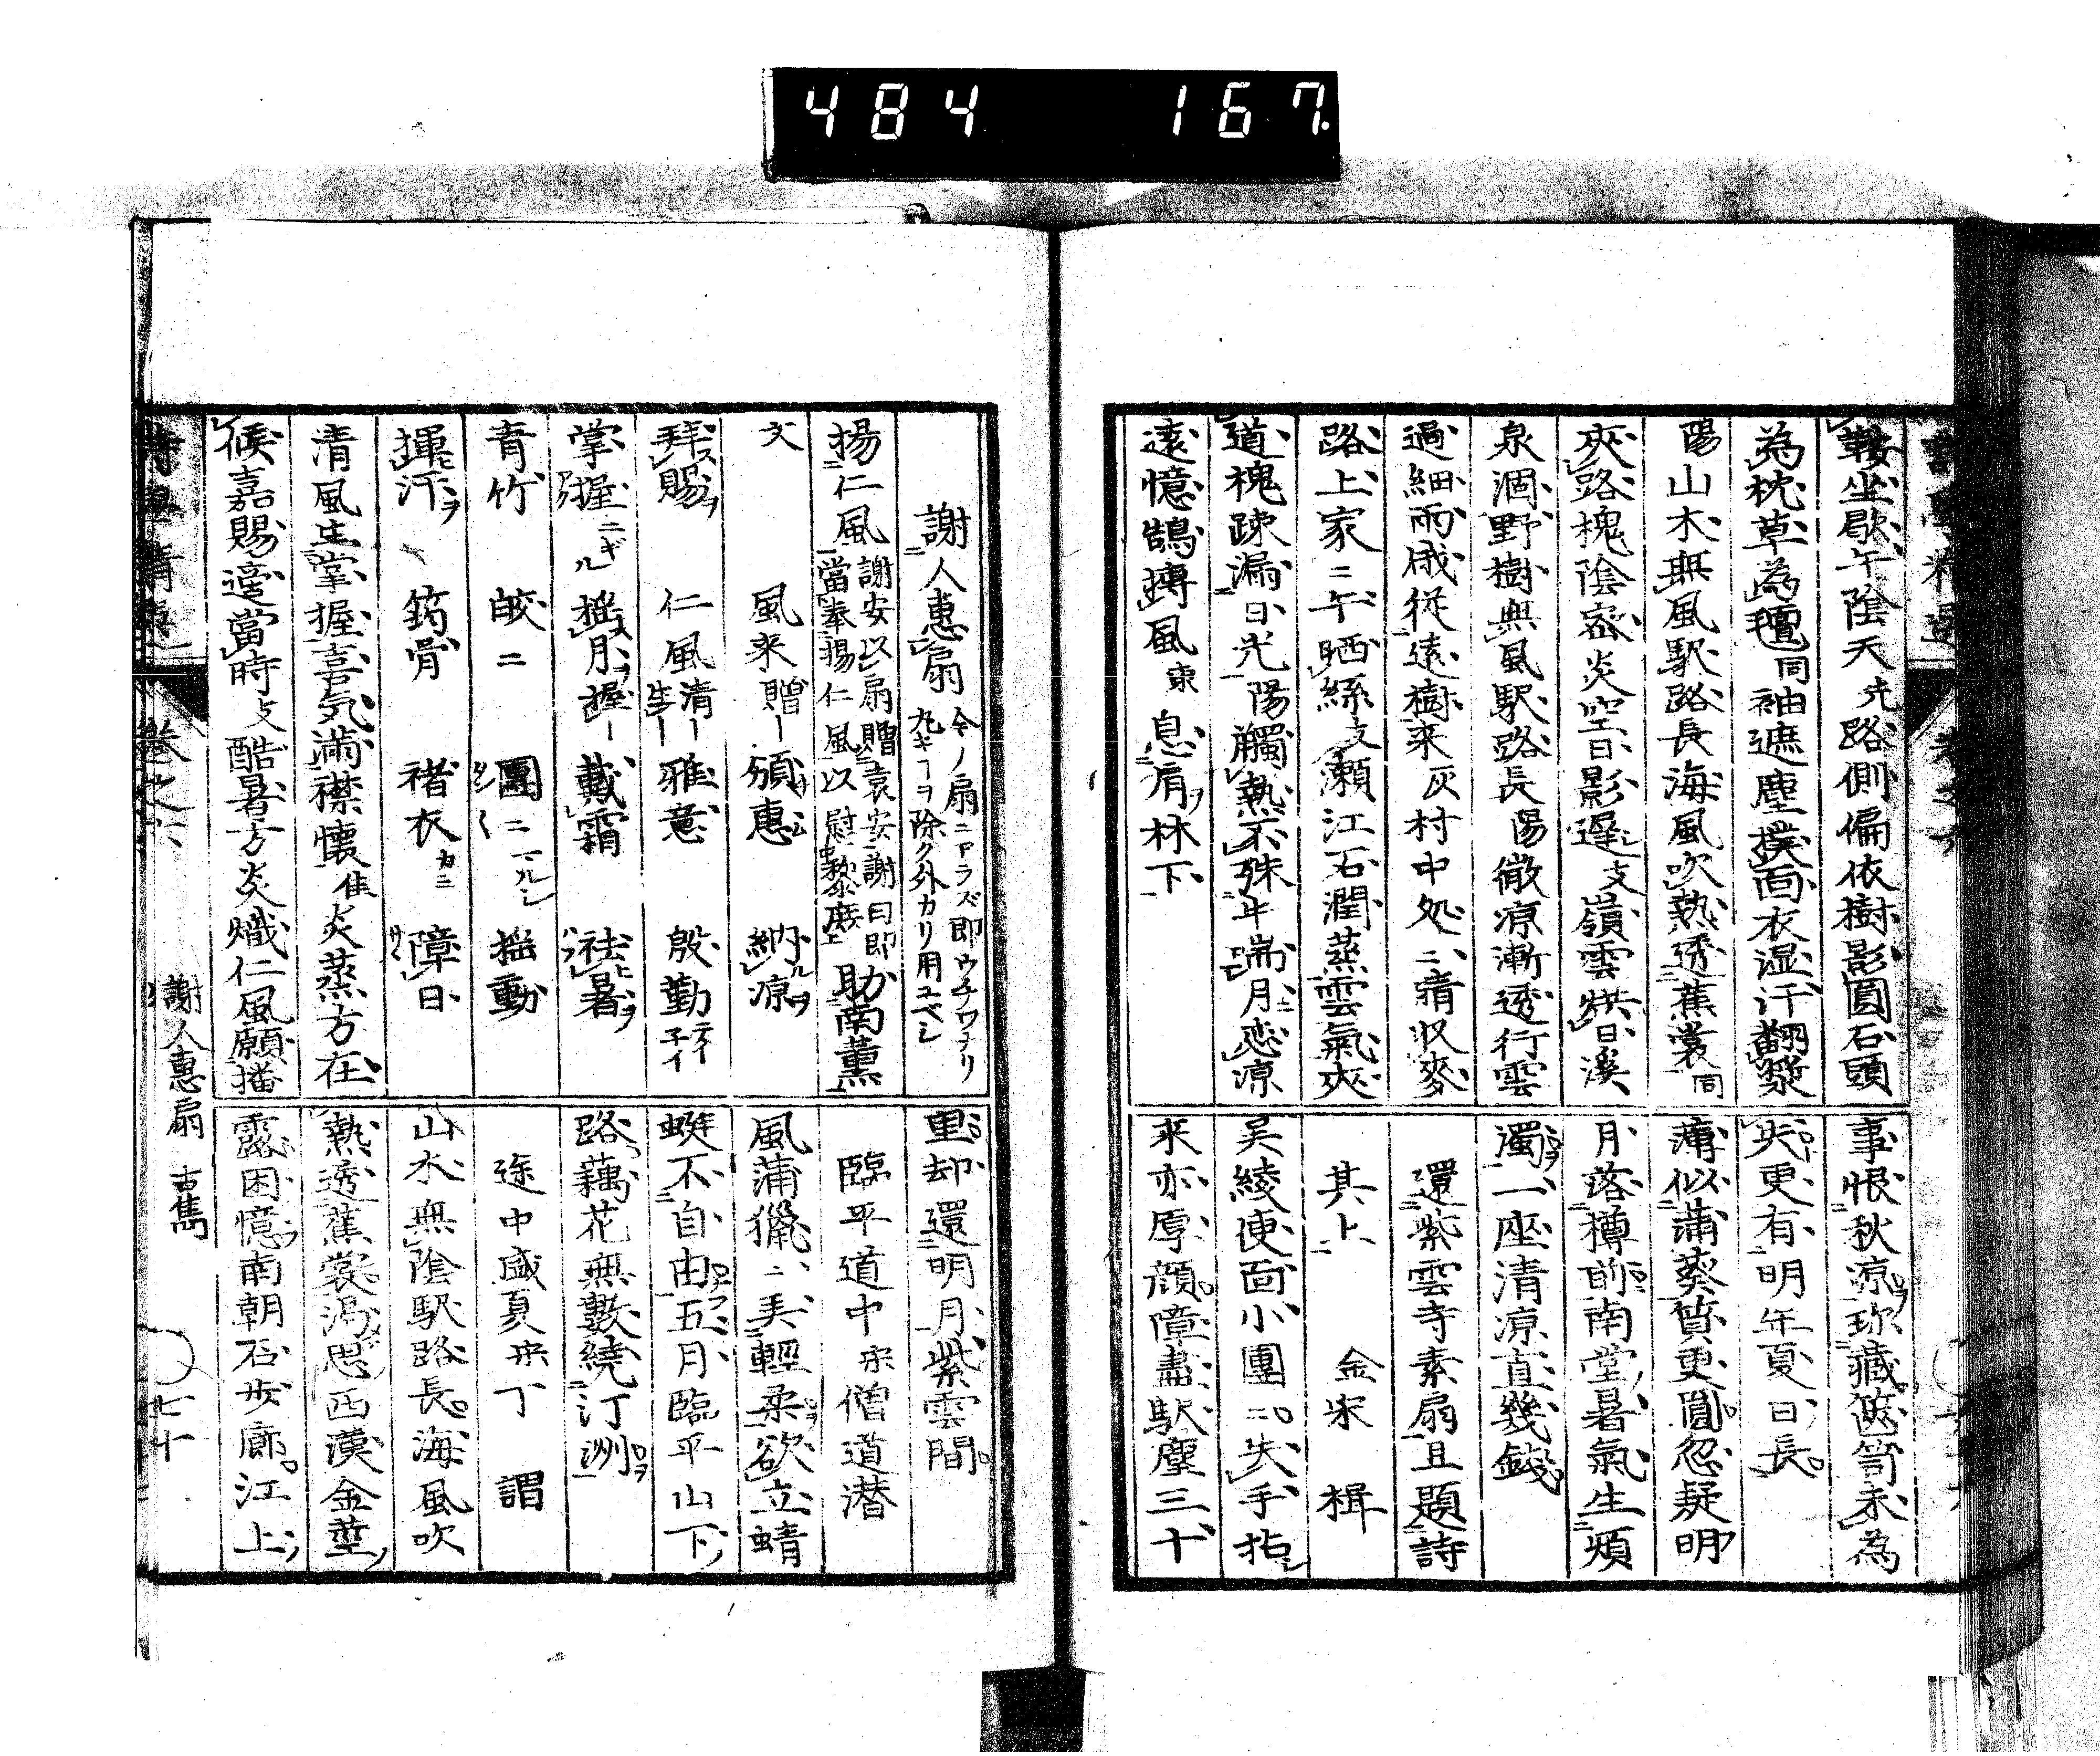 484 167
鞍坐歇午陰天先路側偏依樹影圓石頭
為枕草為氊同袖遮塵撲面衣湿汗翻漿
陽山木無風駅路長海風吹熱透蕉裳同
夾路槐陰密炎空日影遲支嶺雲烘日溪
泉涸野樹無風駅路長陽微凉漸透行雲
過細雨成從遠樹来灰村中処〻猜収麥
路上家〻午晒絲支瀬江石潤蒸雲氣夾
道槐踈漏日光陽觸熱不殊牛喘月恋凉
遠憶鵠摶風東息肩林下
事恨秋凉珎藏篋笥永為
失更有明年夏日長
薄似蒲葵質更圓忽疑明
月落樽前南堂暑氣生煩
濁一座清凉直幾錢
還紫雲寺素扇且題詩
其上 金宋 楫
吴綾便面小團〻失手拈
来亦厚顔障盡駅塵三十
謝人惠扇 今ノ扇ニアラズ即ウチワナリ
揚仁風 謝安以扇贈袁安謝曰即
當奉揚仁風以慰黎庶 助南薫
文 風来贈ー 頒惠 納凉
拜賜 仁風清ー 雅意 殷勤
掌握 揺月握ー 戴霜 祛暑
青竹 皎〻 團〻 揺動
揮汗 筠骨 褚衣 障日
清風生掌握喜気滿襟懐佳炎蒸方在
候嘉賜邉當時文酷暑方炎熾仁風願播
里却還明月紫雲間
臨平道中 宋僧道潜
風蒲獵〻弄輕柔欲立蜻
蜓不自由五月臨平山下
路藕花無數繞汀洲
途中盛夏 宋丁 謂
山木無陰駅路長海風吹
熱透蕉裳渇思西漢金莖
露困憶南朝石步廊江上
卷之六 謝人惠扇 古雋 七十